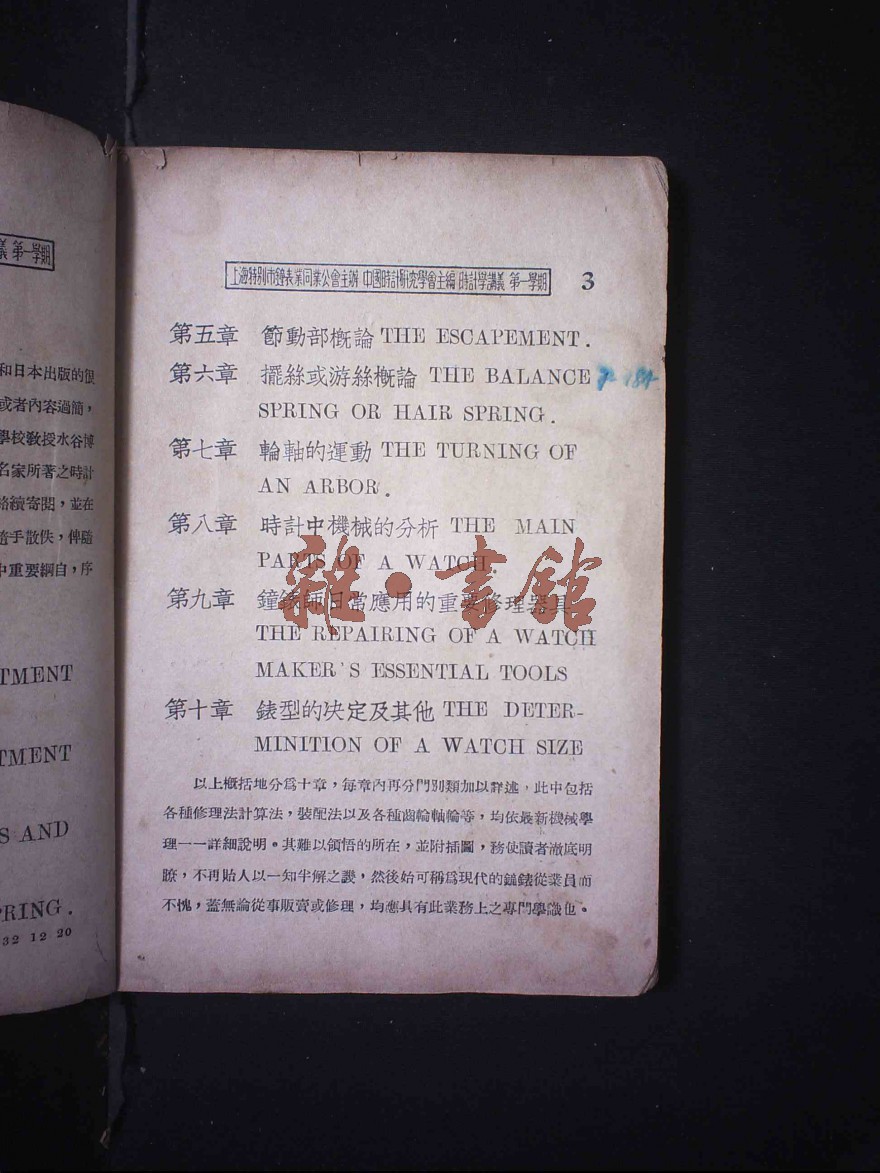 義 第一學期
和日本出版的很
或者內容過簡，
學校敎授水谷博
名家所著之時計
絡續寄閱，並在
隨手散佚，俾隨
中重要綱自，序
TMENT
TMENT
S AND
PRING.
32 12 20
上海特別市鐘表業同業公會主辦 中國時計硏究學會主編 時計學講義 第一學期
3
第五章 節動部槪論 THE ESCAPEMENT.
第六章 擺絲或游絲槪論 THE BALANCE
SPRING OR HAIR SPRING.
第七章 輪軸的運動 THE TURNING OF
AN ARBOR.
第八章 時計中機械的分析 THE MAIN
PARTS OF A WATCH.
第九章 鐘錶師日常應用的重要修理器具
THE REPAIRING OF A WATCH
MAKER'S ESSENTIAL TOOLS
第十章 錶型的决定及其他 THE DETER-
MINITION OF A WATCH SIZE
以上槪括地分爲十章，每章內再分門別類加以詳述，此中包括
各種修理法計算法，裝配法以及各種齒輪軸輪等，均依最新機械學
理一一詳細說明。其難以領悟的所在，並附插圖，務使讀者澈底明
瞭，不再貽人以一知半解之譏，然後始可稱爲現代的鐘錶從業員而
不愧，蓋無論從事販賣或修理，均應具有此業務上之專門學識也。
雜·書館